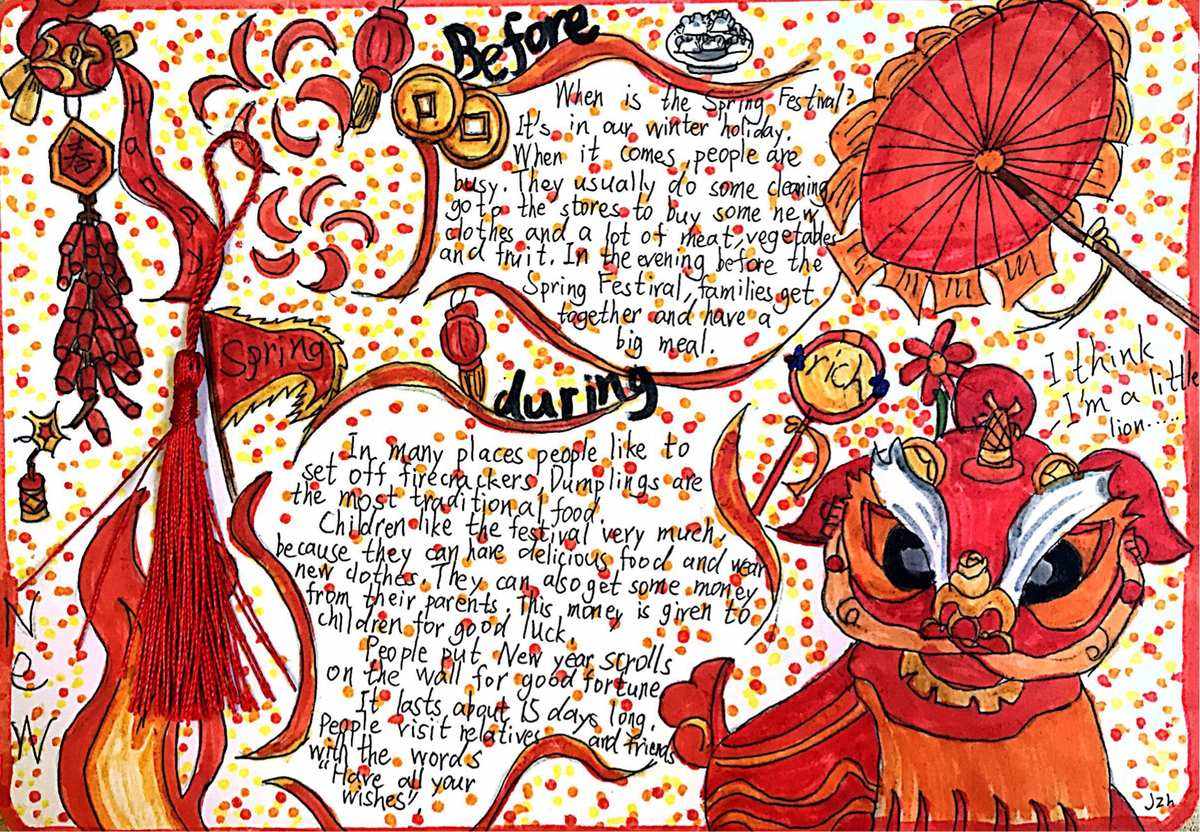 Before
When is the Spring Festival?
It's in our winter holiday.
When it comes, people are
busy. They usually do some cleaning,
go to the stores to buy some new
clothes and a lot of meat, vegetables
and fruit. In the evening before the
Spring Festival, families get
together and have a
big meal.
春
Spring
rich
during
I think
I'm a little
lion....
In many places people like to
set off firecrackers. Dumplings are
the most traditional food.
Children like the festival very much,
because they can have delicious food and wear
new clothes. They can also get some money
from their parents. This money is given to
children for good luck.
People put New year scrolls
on the wall for good fortune
It lasts about 15 days long.
People visit relatives and friends
with the words
"Have all your
wishes".
New
Jzh